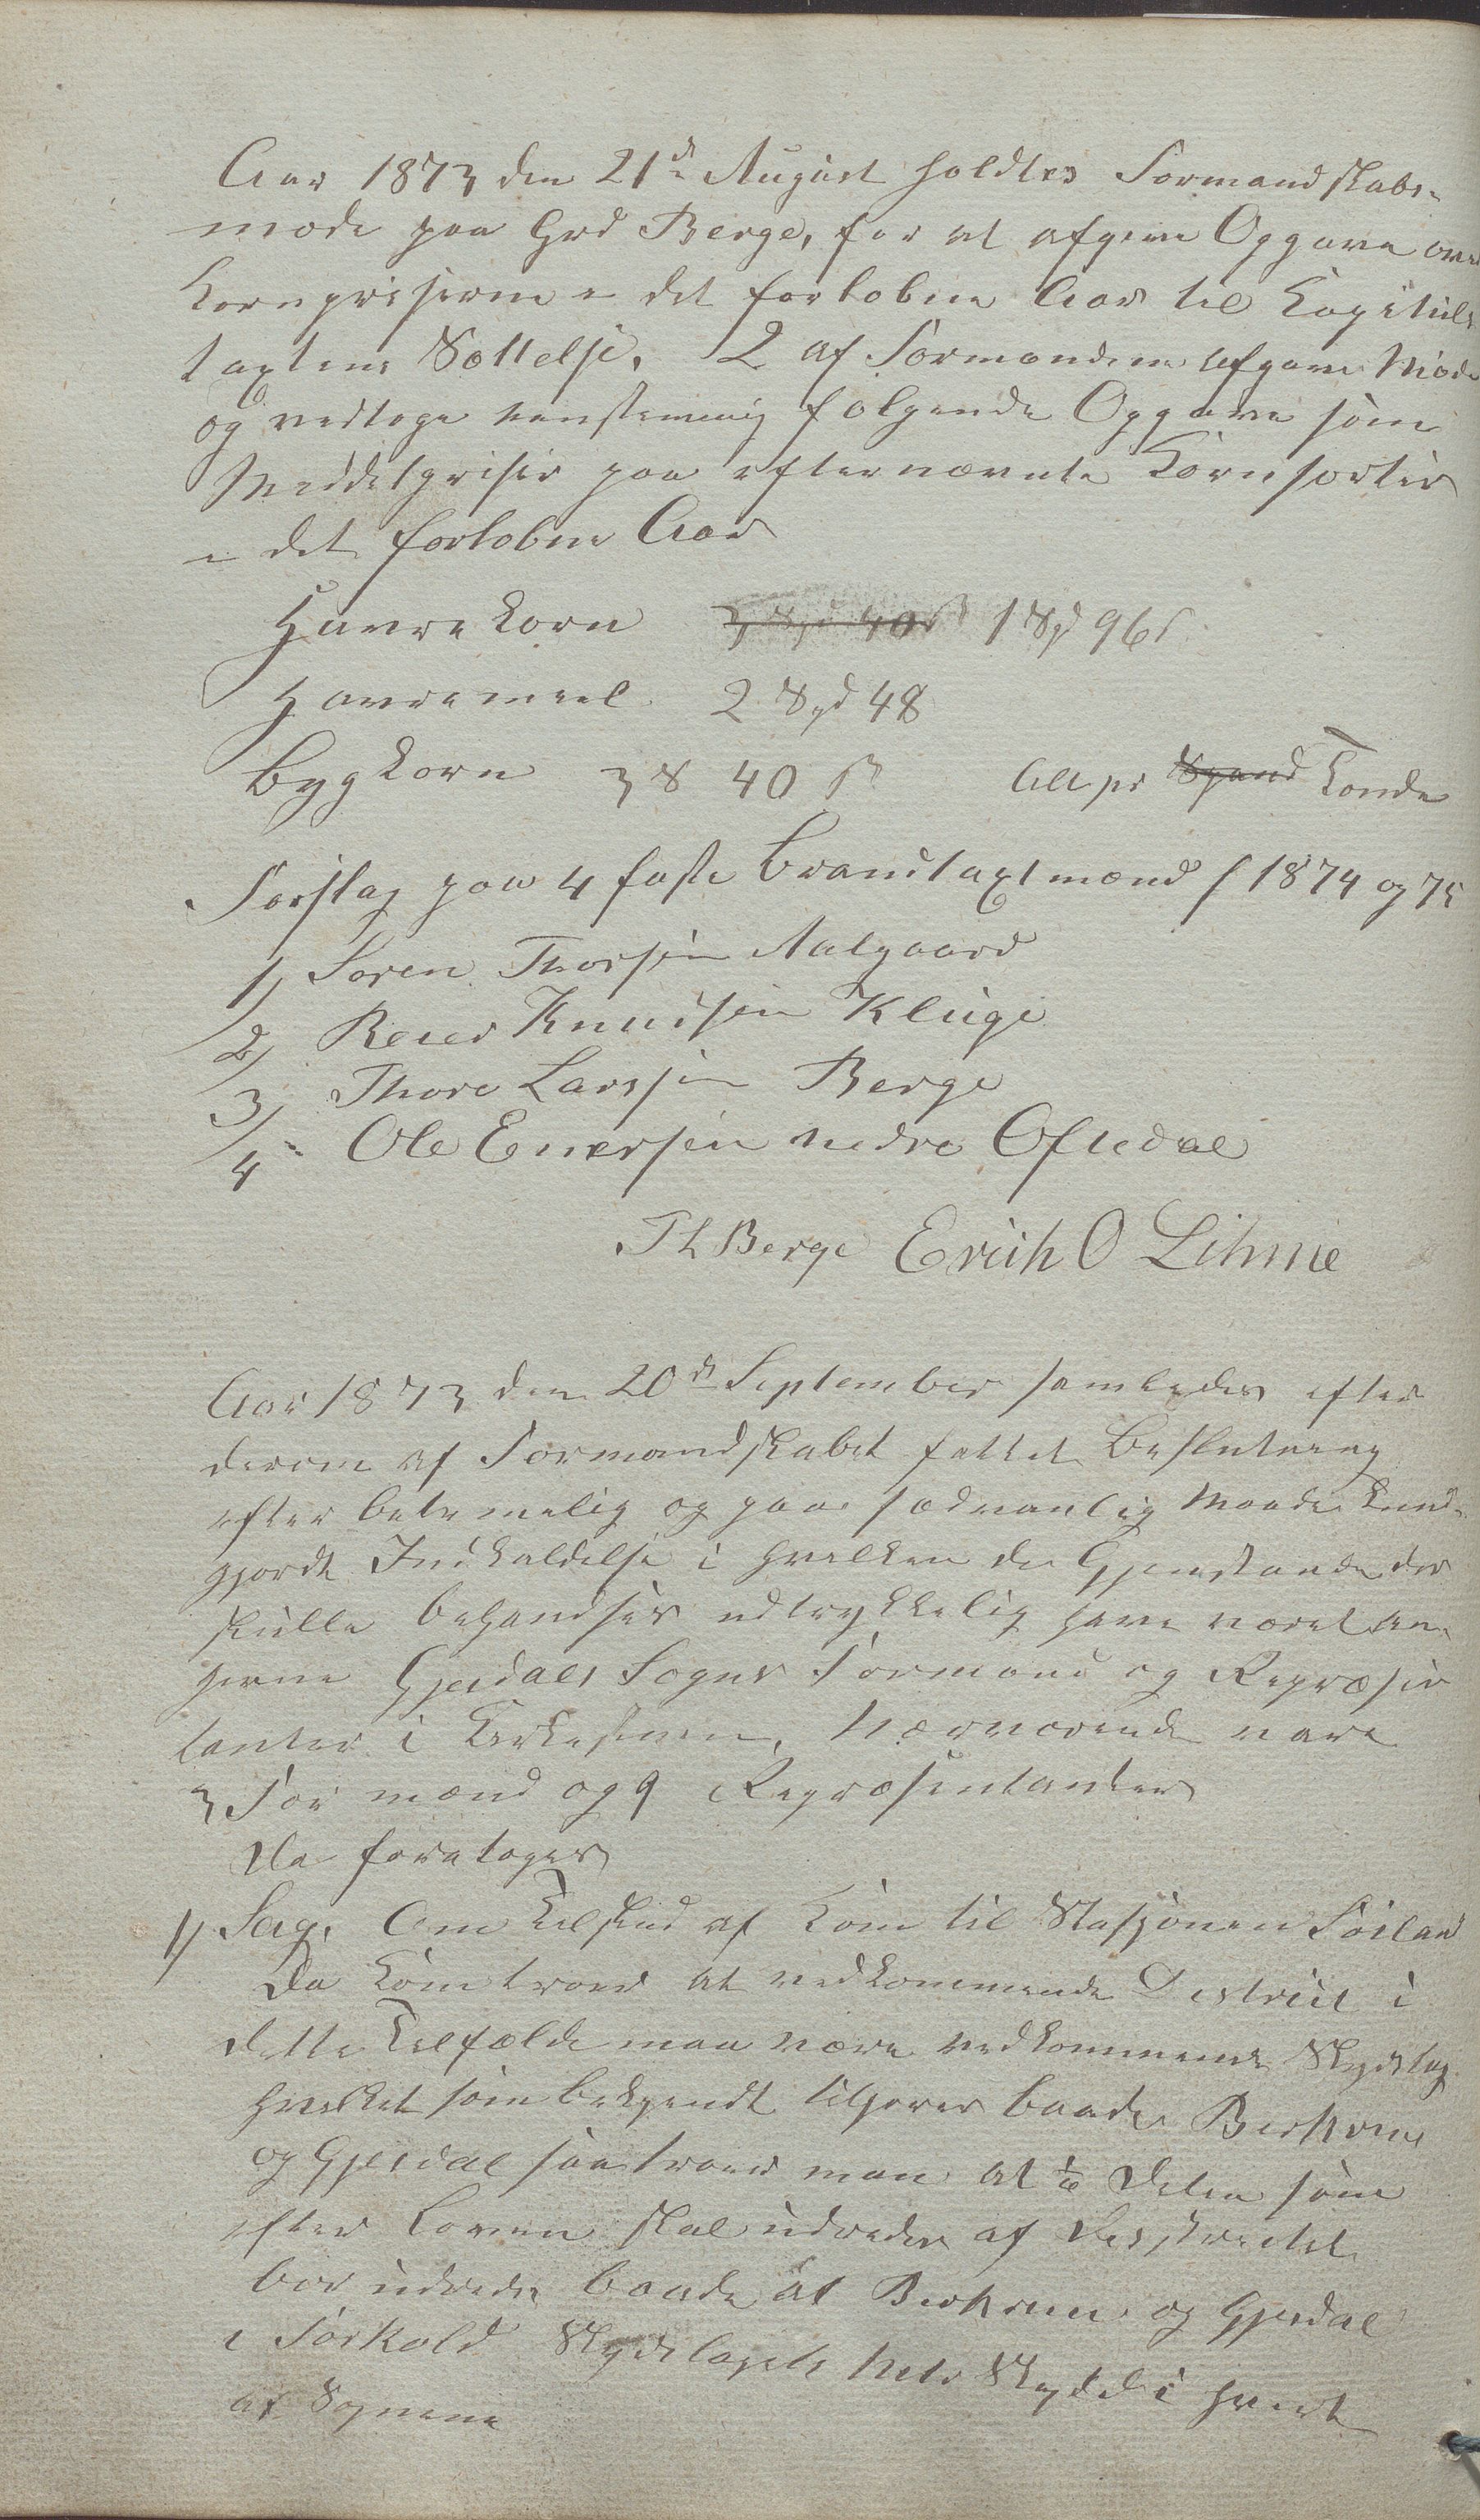 Aar 1873 den 21de August holdtes Formandskabs-
møde paa Grd Berge, for at afgive Opgave over
Kornpriserne i det forløbne Aar til Kapitels
taxtens Sættelse. 2 af Formændene afgave Møde
og vedtoge eenstemmig følgende Opgave som
Middelpriser paa efternævnte Kornsorter
i det forløbne Aar
Havrekorn 3 Spd 40 ß 1 Spd 96 ß
Havremeel 2 Spd 48
Bygkorn 3 S 40 ß Alt pr Spand Tønde
Forslag paa 4 faste Brandtaxtmænd f 1874 og 75
1) Søren Thorsen Aalgaard
2) Reier Knudsen Kluge
3) Thore Larsen Berge
4 Ole Enersen nedre Oftedal
Th Berge Erich O Lihmie
Aar 1873 den 20de September samledes efter
derom af Formandskabet fattet Beslutning
efter betimelig og paa sædvanlig Maade kund-
gjordt Indkaldelse i hvilken de Gjenstande der
skulle behandles udtrykkelig have været an-
givne Gjesdals Sogns Formænd og Repræsen
tanter i Kirkestuen, Nærværende vare
3 For mænd og 9 Repræsentanter
Da foretoges
1) Sag. Om Tilskud af Kom til Stasjonen Søiland
Da Kom troer at vedkommende District i
dette Tilfælde maa være vedkommende Skydslag
hvilket som bekjendt tilhører baade Birkrem
og Gjesdal saa troer man at 1/6 Delen som
efter Loven skal udredes af Districtet
bør udredes baade af Birkrem og Gjesdal
i Forhold Skydslagets Matr Skyld i hvert
af Sognene